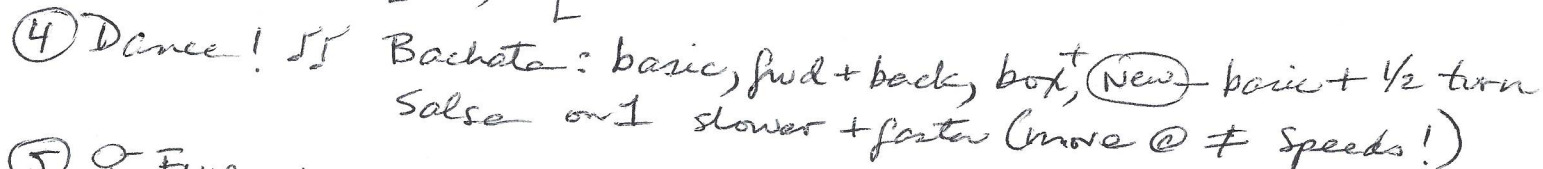 ④ Dance! ♫ Bachata: basic, fwd + back, box⁺, (New) - basic + 1/2 turn
Salsa on 1 slower + faster (more @ ≠ speeds!)
⑤